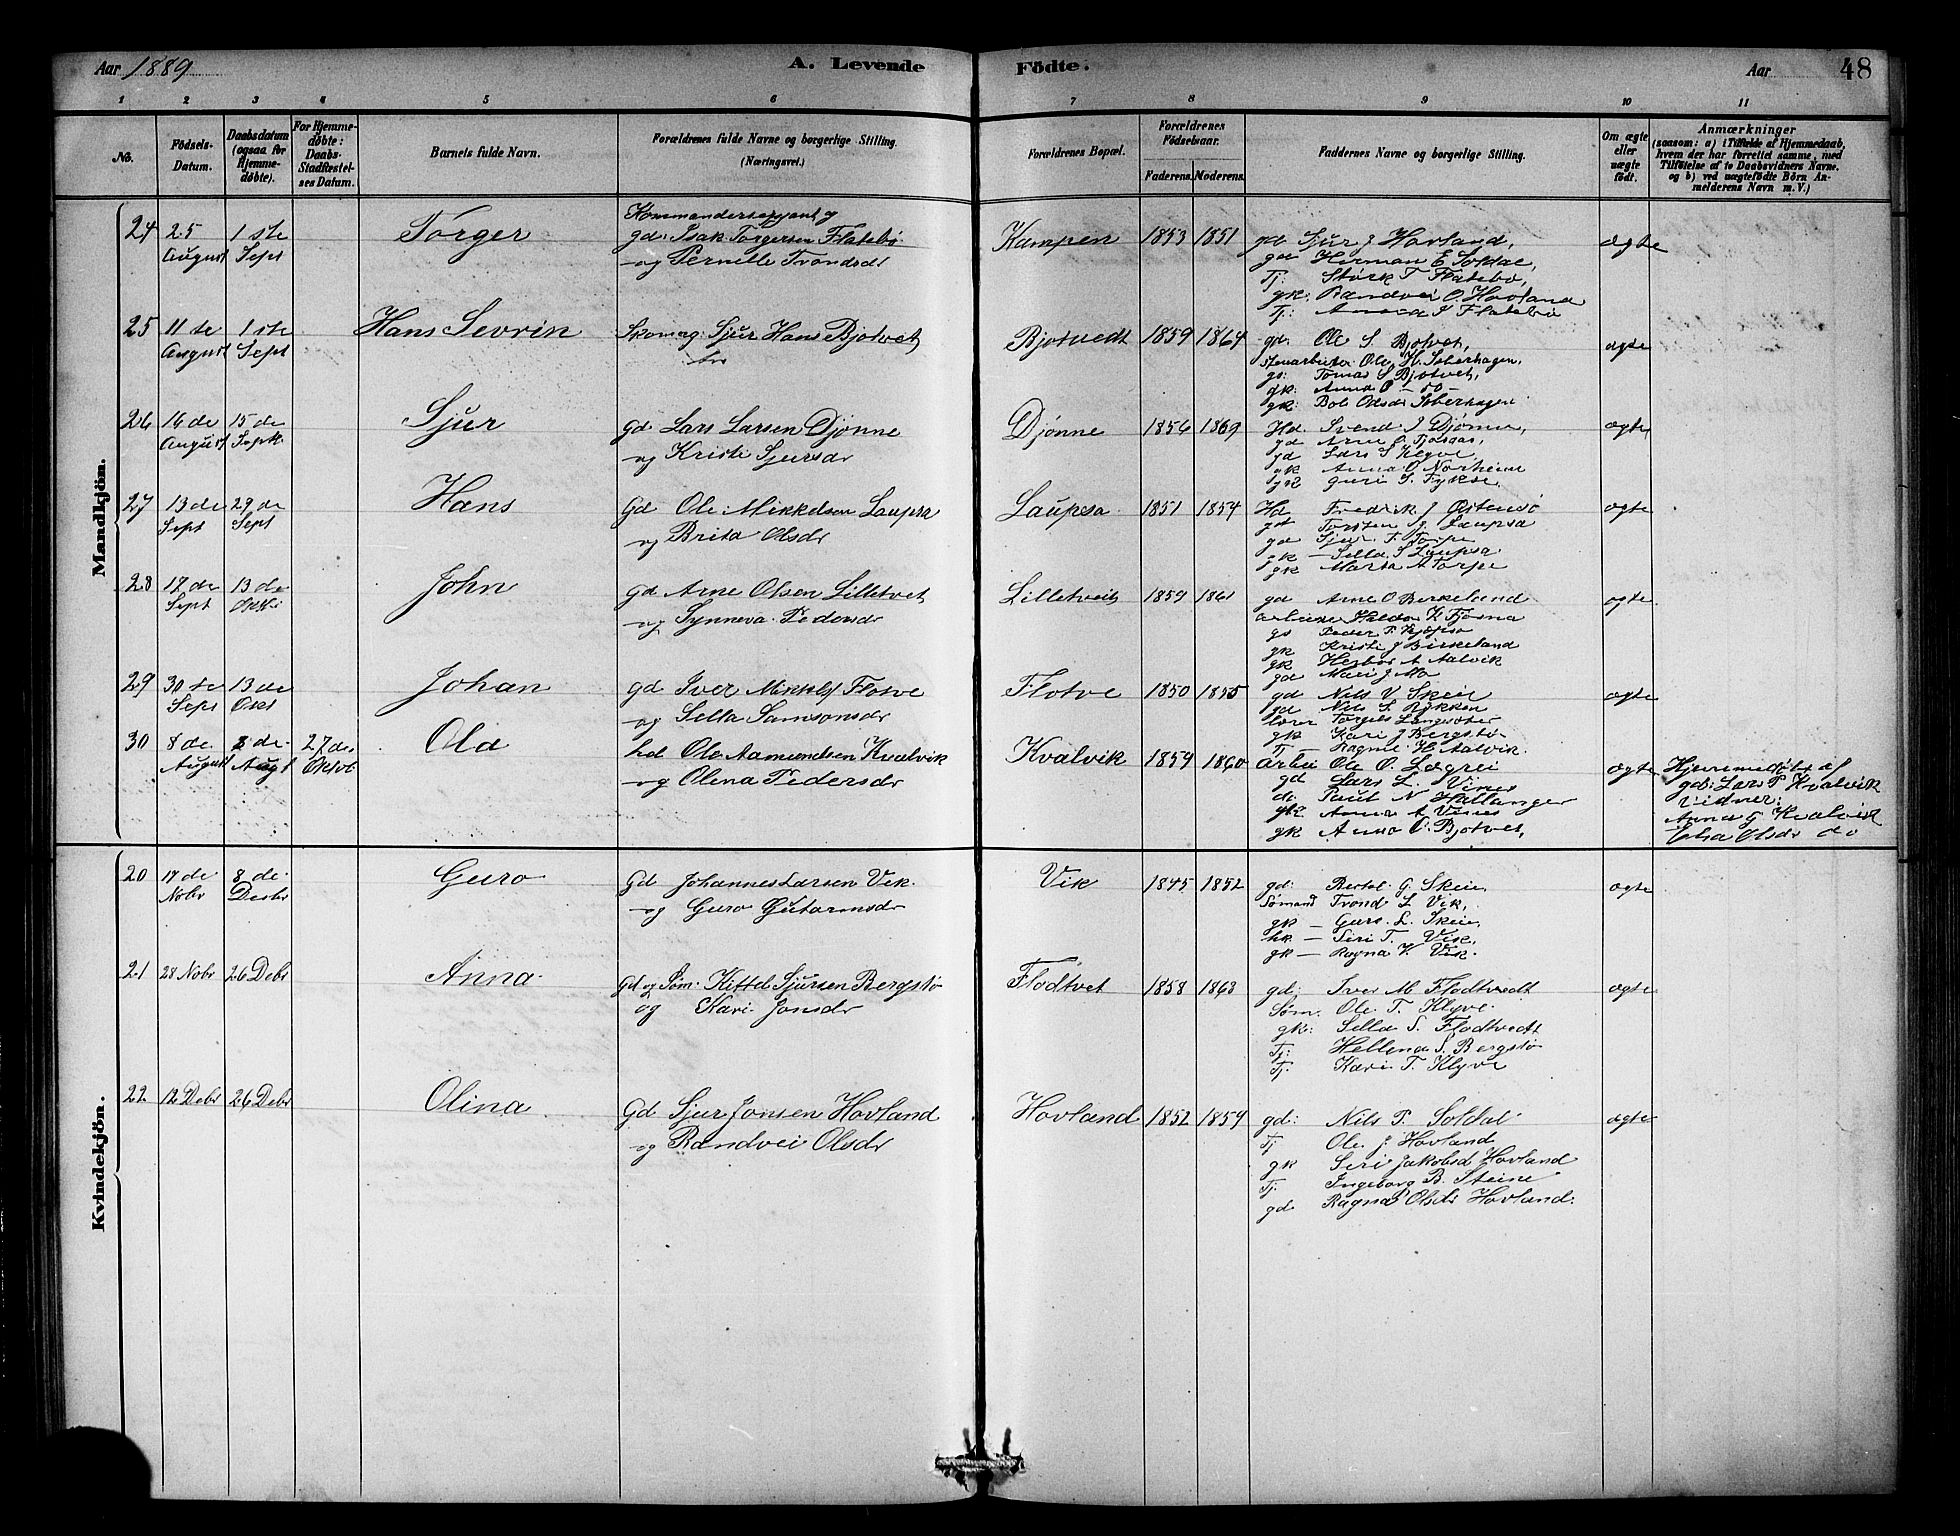 Aar 1889 A. Levende Födte. Aar 48
1 2 3 4 5 6 7 8 9 10 11
No. Födsels-Datum. Daabsdatum (ogsaa for Hjemme-döbte). For Hjemme-döbte: Daabs-Stadfæstel-ses Datum. Barnets fulde Navn. Forældrenes fulde Navne og borgerlige Stilling. (Næringsvei.) Forældrenes Bopæl. Forældrenes Födselsaar. Faderens. Moderens. Faddernes Navne og borgerlige Stilling. Om ægte eller uægte födt. Anmærkninger (saasom: a) i Tilfælde af Hjemmedaab, hvem der har forrettet samme, med Tilföielse af to Daabsvidners Navne. og b) ved uægtefödte Börn Anmelderens Navn m. V.)
Mandkjön.
24 25 August 1 ste Sept Torger Kommandersergent og
gd: Isak Torgersen Flatebø
og Pernille Trondsdr
Kampen 1853 1851 gd Sjur J Hovland,
gd Herman E Soldal,
Tj: Størk T Flatebø,
gk: Randvei O. Hovland
Tj: I Flatebø
ægte
25 11 te August 1 ste Sept Hans Sevrin Skomag: Sjur Hans Bjotvet
Bjotvedt 1859 1864 gd. Ole S. Bjotvet,
Ole H. Seberhagen,
gs: Tomas S Bjotvet,
gk: Anna O - do -
gk: Odsdr Seberhagen
ægte
26 16 de August 15 de Sept. Sjur gd Lars Larsen Djønne
og Kristi Sjursdr
Djønne 1856 1869 Hd. Svend J Djønne,
gd Arne O.
gd Lars S Klyve,
gk Anna O Norheim
gk Guri S. Fykse.
ægte
27 13 de Sept 29 de Sept Hans Gd Ole Mikkelsen Laupsa
og Brita Olsdr
Laupsa 1851 1854 Hd Fredrik J Østensø
gd Torsten J. Laupsa
gd Sjur T. Torpe
gk - Sella S Laupsa
gk Marta A Torpe
ægte
28 17 de Sept 13 de Okt. John gd Arne Olsen Lilletvet
og Synneva Pedersdr
Lilletveit 1859 1861 gd Arne O Berkeland
arbeider Haldor K Fjøsna
gs Peder T.
gk Kristi J Birkeland
gk Herbor A Aalvik
gd Mari J. Mo
ægte
29 30 te Sept 13 de Okt Johan gd Iver Mikkels Flotve
og Sella Samsonsdr
Flotve 1850 1855 gd Nils V. Skeie
gd Nils S. Rykken
Torgils Langesæter
gk Kari J Bergstø
Tj - Ragne H. Aalvik.
ægte
30 8 de August 8 de Augt 27 de Oktob Ola hd Ole Aamundsen Kvalvik
og Olena Pedersdr
Kvalvik 1859 1860 arbei Ole O. Lægrei
gd Lars L. Vines
Paul N Hallanger
gk Anna A Vines
gk Anna O. Bjotvet,
ægte Hjemmedøbt af
gd: Lars P Kvalvik
Vidner:
Anna G Kvalvik
Elsa Olsdr do
Kvindekjön.
20 17 de Nobr 8 de Desbr Guro Gd Johannes Larsen Vik.
og Guro Gutormsdr
Vik 1845 1852 gd: Bertel G. Skeie
Sømand Trond L Vik,
gk - Guro L. Skeie,
hk - Siri T. Vik,
gk - Ragna V. Vik.
ægte
21 28 Nobr 26 Debr Anna Gd og Søm: Kittel Sjursen Bergstø
og Kari Jonsdr
Flodtvet 1858 1863 gd: Iver M Flodtvedt
Søm. Ole T. Klyve.
gk: Sella S. Flodtvedt
Tj: Hellena S. Bergstø
Tj. Kari T. Klyve
ægte
22 12 Debr 26 Debr Olina Gd Sjur Jonsen Hovland
og Randvei Olsdr
Hovland 1852 1859 gd: Nils P. Soldal
Tj Ole J Hovland
gk Seri Jakobsd Hovland
Tj: Ingeborg B. Steine
gd Ragna Olsdr Hovland.
ægte